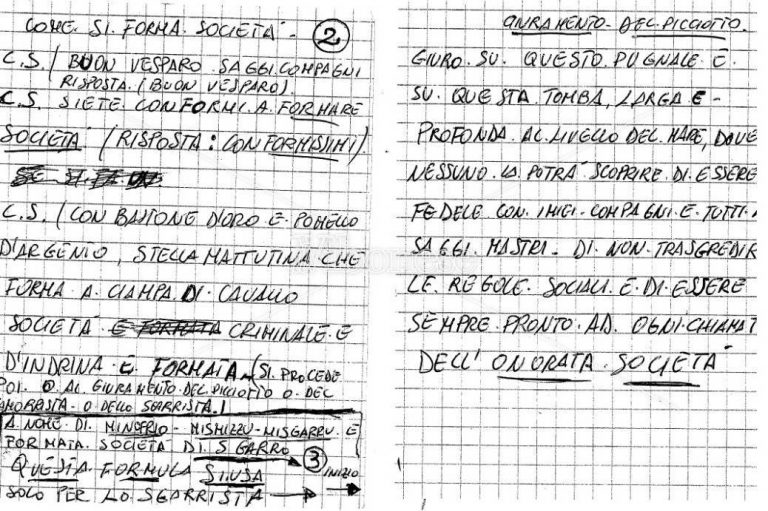 COME. SI. FORMA. SOCIETÀ - 2
C.S. / BUON VESPARO. SAGGI. COMPAGNI
RISPOSTA. (BUON VESPARO).
C.S. SIETE. CONFORMI. A. FORMARE
SOCIETÀ. (RISPOSTA: CONFORMISSIMI).
C.S. / CON BASTONE D'ORO E. POMELLO
D'ARGENTO, STELLA MATTUTINA. CHE
FORMA. A. CIAMPA. DI. CAVALLO
SOCIETÀ E FORMATA CRIMINALE. E
D'INDRINA. È. FORMATA. (SI. PROCEDE
POI. O. AL GIURAMENTO. DEL. PICCIOTTO O. DEL
CAMORRISTA. O DELLO SGARRISTA.)
A. NOME. DI. MINOFRIO - MISMIZZU - MISGARRU. E
FORMATA. SOCIETÀ DI. SGARRO
QUESTA. FORMULA SI. USA 3 INIZIO
SOLO PER LO. SGARRISTA
GIURAMENTO. DEL. PICCIOTTO.
GIURO. SU. QUESTO. PUGNALE. E.
SU. QUESTA. TOMBA, LARGA E -
PROFONDA. AL LIVELLO DEL. MARE, DOVE
NESSUNO. LA. POTRÀ SCOPRIRE. DI. ESSERE
FEDELE. CON. I MIEI. COMPAGNI. E. TUTTI. I
SAGGI. MASTRI. DI. NON. TRASGREDIR
LE. REGOLE. SOCIALI. E. DI. ESSERE
SEMPRE. PRONTO. AD. OGNI. CHIAMAT
DELL' ONORATA. SOCIETÀ